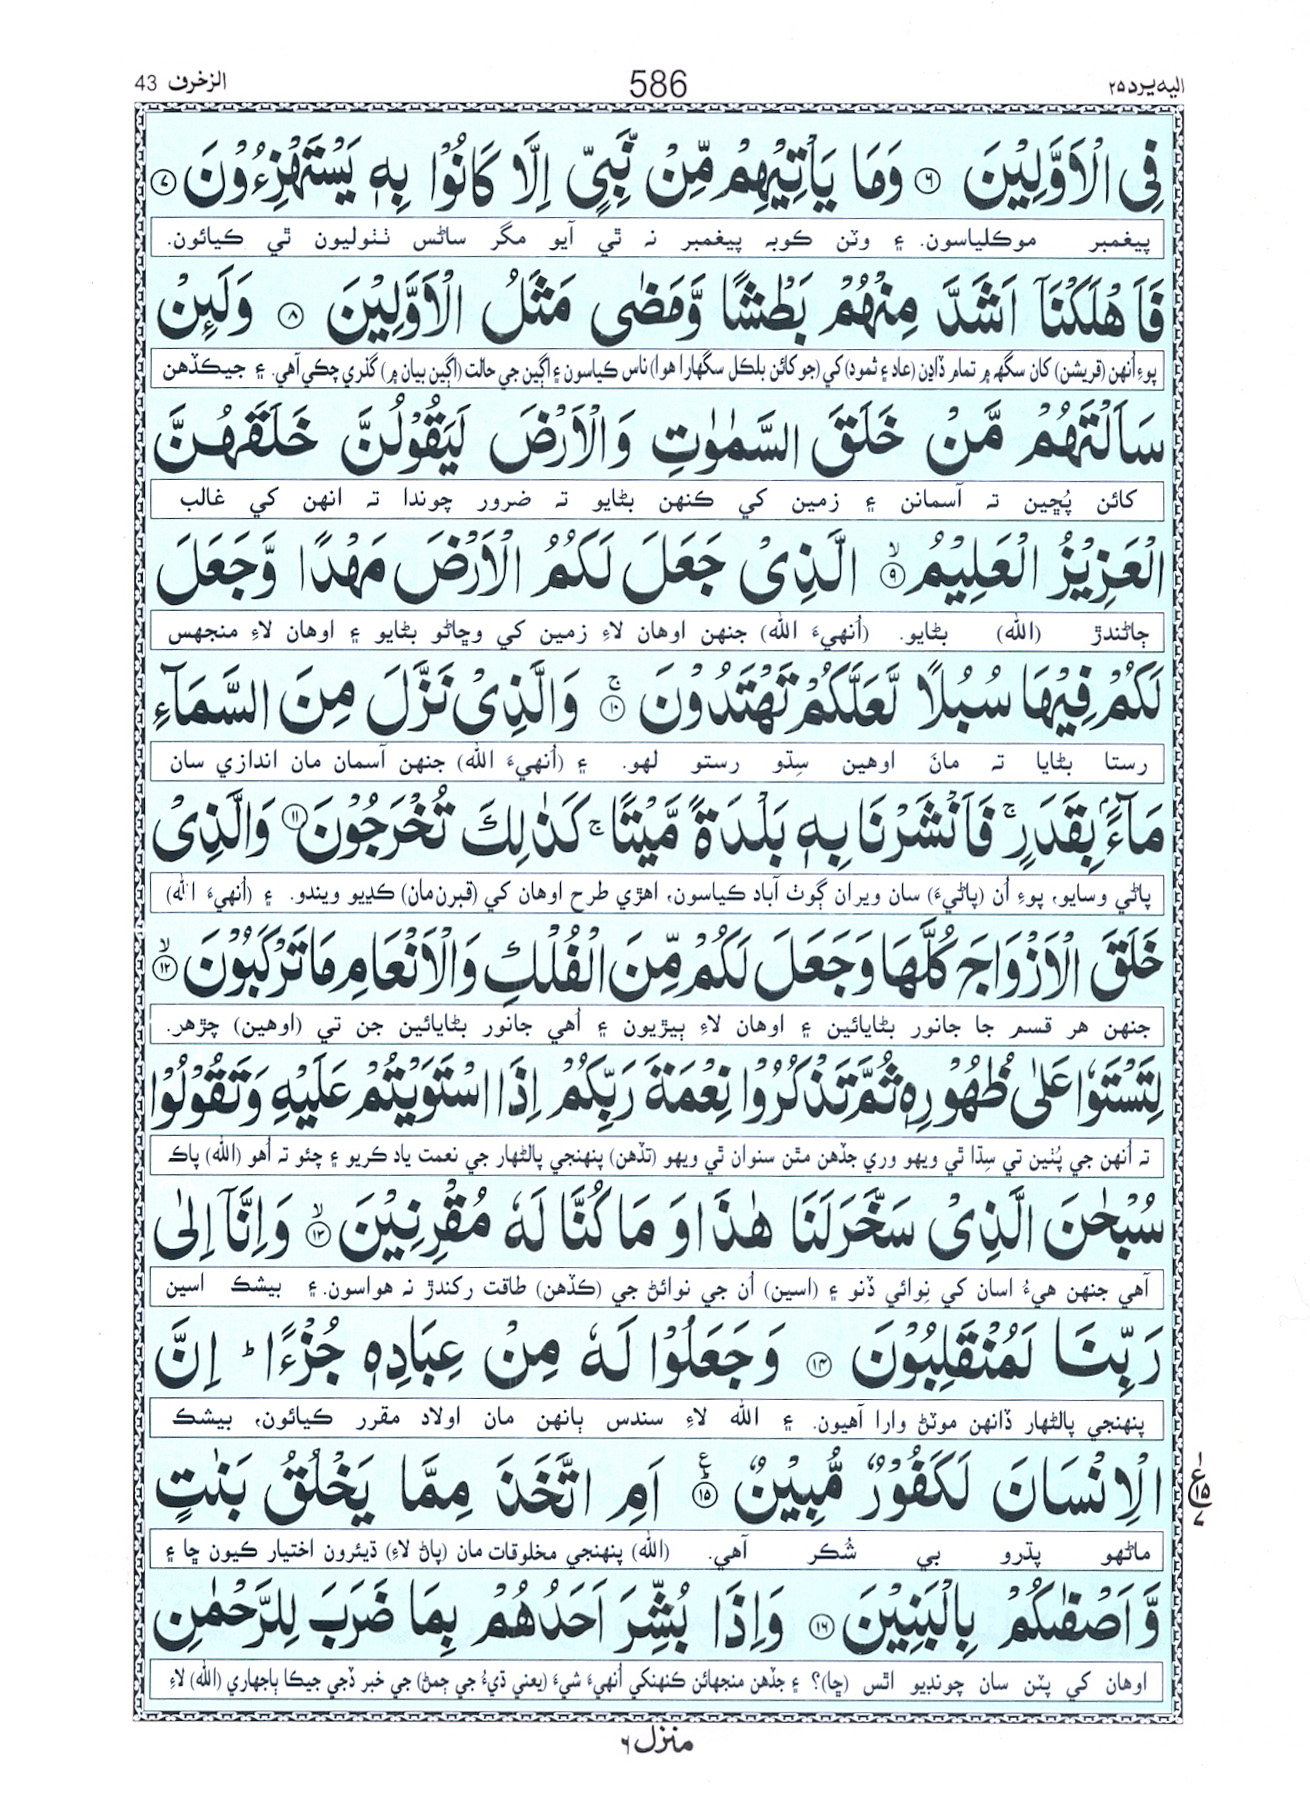 اليه يرد ٢٥ 586 الزخرف 43
فِى الۡاَوَّلِيۡنَ ۝۶ وَمَا يَاۡتِيۡهِمۡ مِّنۡ نَّبِىٍّ اِلَّا كَانُوۡا بِهٖ يَسۡتَهۡزِءُوۡنَ ۝۷
پيغمبر موڪلياسون. ۽ وٽن ڪوبہ پيغمبر نہ ٿي آيو مگر ساڻس ٺٺوليون ٿي ڪيائون.
فَاَهۡلَكۡنَاۤ اَشَدَّ مِنۡهُمۡ بَطۡشًا وَّمَضٰى مَثَلُ الۡاَوَّلِيۡنَ ۝۸ وَلَٮِٕنۡ
پوءِ اُنھن (قريشن) کان سگھ ۾ تمام ڏاڍن (عاد ۽ ثمود) کي (جو کائن بلڪل سگھارا ھوا) ناس ڪياسون ۽ اڳين جي حالت (اڳين بيان ۾) گذري چڪي آھي. ۽ جيڪڏھن
سَاَلۡتَهُمۡ مَّنۡ خَلَقَ السَّمٰوٰتِ وَالۡاَرۡضَ لَيَقُوۡلُنَّ خَلَقَهُنَّ
کائن پُڇين تہ آسمانن ۽ زمين کي ڪنھن بڻايو تہ ضرور چوندا تہ انھن کي غالب
الۡعَزِيۡزُ الۡعَلِيۡمُ ۙ‏ ۝۹ الَّذِىۡ جَعَلَ لَكُمُ الۡاَرۡضَ مَهۡدًا وَّجَعَلَ
ڄاڻندڙ (الله) بڻايو. (اُنھيءَ الله) جنھن اوھان لاءِ زمين کي وڇاڻو بڻايو ۽ اوھان لاءِ منجھس
لَكُمۡ فِيۡهَا سُبُلًا لَّعَلَّكُمۡ تَهۡتَدُوۡنَ ۚ‏ ۝۱۰ وَالَّذِىۡ نَزَّلَ مِنَ السَّمَآءِ
رستا بڻايا تہ مانَ اوھين سِڌو رستو لھو. ۽ (اُنھيءَ الله) جنھن آسمان مان اندازي سان
مَآءًۢ بِقَدَرٍ‌ۚ فَاَنۡشَرۡنَا بِهٖ بَلۡدَةً مَّيۡتًا‌ ۚ كَذٰلِكَ تُخۡرَجُوۡنَ ۝۱۱ وَالَّذِىۡ
پاڻي وسايو، پوءِ اُن (پاڻيءَ) سان ويران ڳوٺ آباد ڪياسون، اھڙي طرح اوھان کي (قبرن مان) ڪڍيو ويندو. ۽ (اُنھيءَ الله)
خَلَقَ الۡاَزۡوَاجَ كُلَّهَا وَجَعَلَ لَكُمۡ مِّنَ الۡفُلۡكِ وَالۡاَنۡعَامِ مَا تَرۡكَبُوۡنَ ۙ‏ ۝۱۲
جنھن ھر قسم جا جانور بڻايائين ۽ اوھان لاءِ ٻيڙيون ۽ اُھي جانور بڻايائين جن تي (اوھين) چڙھو.
لِتَسۡتَوٗا عَلٰى ظُهُوۡرِهٖ ثُمَّ تَذۡكُرُوۡا نِعۡمَةَ رَبِّكُمۡ اِذَا اسۡتَوَيۡتُمۡ عَلَيۡهِ وَتَقُوۡلُوۡا
تہ اُنھن جي پُٺين تي سِڌا ٿي ويھو وري جڏھن مٿن سنوان ٿي ويھو (تڏھن) پنھنجي پالڻھار جي نعمت ياد ڪريو ۽ چئو تہ اُھو (الله) پاڪ
سُبۡحٰنَ الَّذِىۡ سَخَّرَ لَنَا هٰذَا وَمَا كُنَّا لَهٗ مُقۡرِنِيۡنَ ۙ‏ ۝۱۳ وَاِنَّاۤ اِلٰى
آھي جنھن ھيءُ اسان کي نِوائي ڏنو ۽ (اسين) اُن جي نوائڻ جي (ڪڏھن) طاقت رکندڙ نہ ھواسون. ۽ بيشڪ اسين
رَبِّنَا لَمُنۡقَلِبُوۡنَ ۝۱۴ وَجَعَلُوۡا لَهٗ مِنۡ عِبَادِهٖ جُزۡءًا‌ ؕ اِنَّ
پنھنجي پالڻھار ڏانھن موٽڻ وارا آھيون. ۽ الله لاءِ سندس ٻانھن مان اولاد مقرر ڪيائون، بيشڪ
الۡاِنۡسَانَ لَكَفُوۡرٌ مُّبِيۡنٌ ؕ‏ ۝۱۵ اَمِ اتَّخَذَ مِمَّا يَخۡلُقُ بَنٰتٍ
ماڻھو پڌرو بي شُڪر آھي. (الله) پنھنجي مخلوقات مان (پاڻ لاءِ) ڌيئرون اختيار ڪيون ڇا ۽
وَّاَصۡفٰٮكُمۡ بِالۡبَنِيۡنَ ۝۱۶ وَاِذَا بُشِّرَ اَحَدُهُمۡ بِمَا ضَرَبَ لِلرَّحۡمٰنِ
اوھان کي پٽن سان چونڊيو اٿس (ڇا)؟ ۽ جڏھن منجھائن ڪنھنکي اُنھيءَ شيءَ (يعني ڌيءُ جي ڄمڻ) جي خبر ڏجي جيڪا ٻاجھاري (الله) لاءِ
منزل ٦